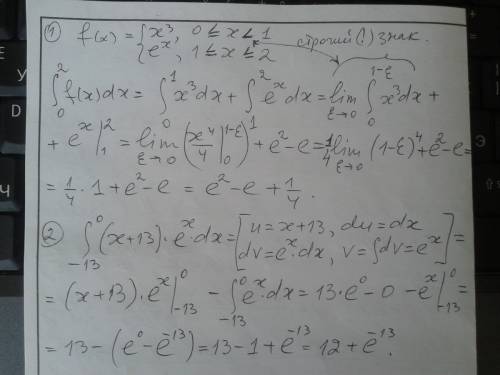 ① f(x) = { x³, 0 ≤ x < 1   строгий (!) знак.
{ eˣ, 1 ≤ x ≤ 2
∫₀² f(x)dx = ∫₀¹ x³dx + ∫₁² eˣdx = lim_{ε→0} ∫₀^{1-ε} x³dx +
+ eˣ|₁² = lim_{ε→0} (x⁴/4 |₀^{1-ε})¹ + e² - e = 1/4 lim_{ε→0} (1-ε)⁴ + e² - e =
= 1/4 · 1 + e² - e = e² - e + 1/4.
② ∫₋₁₃⁰ (x+13)·eˣ·dx = [u = x+13, du = dx
dv = eˣ·dx, v = ∫dv = eˣ] =
= (x+13)·eˣ|₋₁₃⁰ - ∫₋₁₃⁰ eˣ·dx = 13·e⁰ - 0 - eˣ|₋₁₃⁰ =
= 13 - (e⁰ - e⁻¹³) = 13 - 1 + e⁻¹³ = 12 + e⁻¹³.